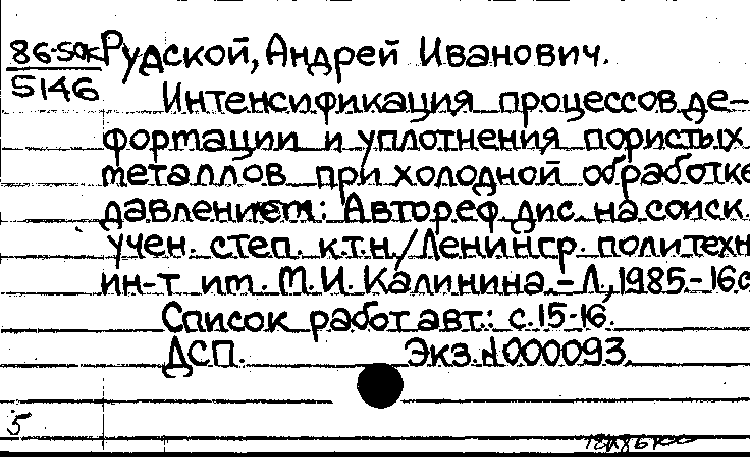 86-50к Рудской, Андрей Иванович.
5146
Интенсификация процессов де-
формации и уплотнения пористых
металлов при холодной обработке
давлением: Автореф. дис. на соиск.
учен. степ. к.т.н./Ленингр. политехн
ин-т им. М.И. Калинина.-Л, 1985-16с
Список работ авт.: с.15-16.
ДСП. Экз.№000093.
5